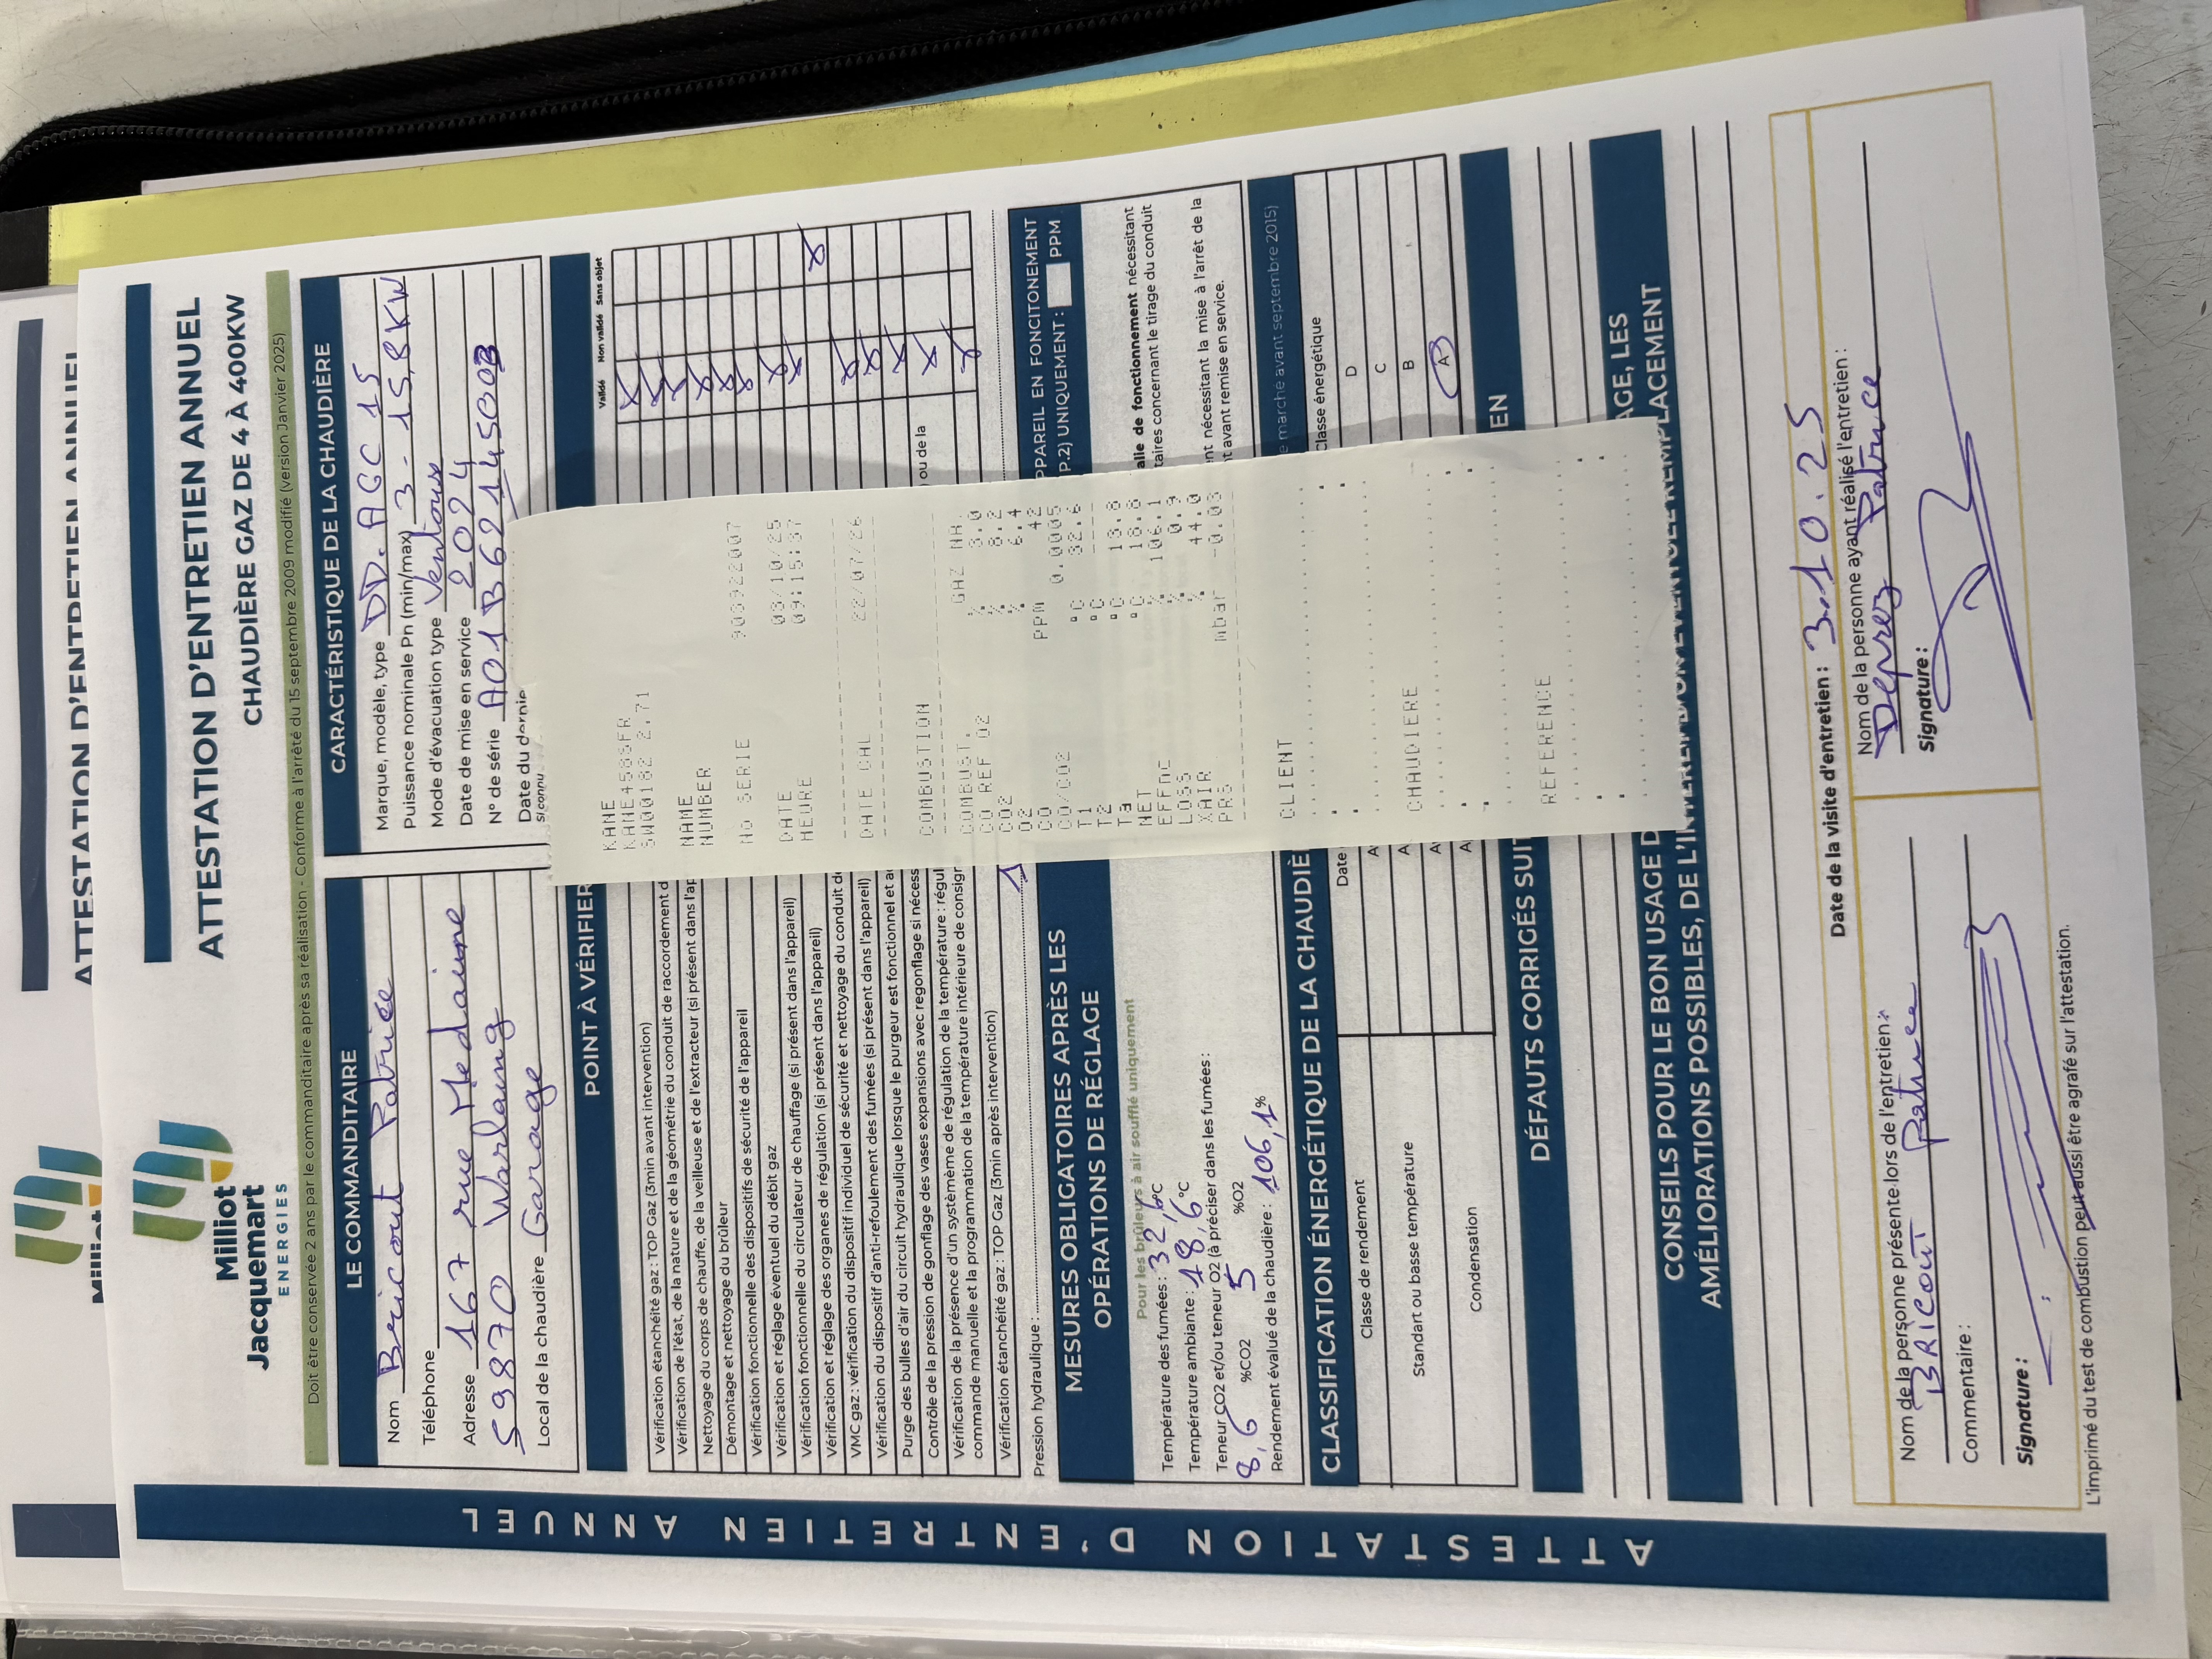 ATTESTATION D'ENTRETIEN ANNUEL
Milliot
Milliot
Jacquemart
ENERGIES
ATTESTATION D'ENTRETIEN ANNUEL
CHAUDIÈRE GAZ DE 4 À 400KW
Doit être conservée 2 ans par le commanditaire après sa réalisation - Conforme à l'arrêté du 15 septembre 2009 modifié (version Janvier 2025)
LE COMMANDITAIRE
Nom Bricout Patrice
Téléphone
Adresse 167 rue Medaime
59870 Warlaing
Local de la chaudière Garage
CARACTÉRISTIQUE DE LA CHAUDIÈRE
Marque, modèle, type DD. AGC 15
Puissance nominale Pn (min/max) 3 - 15,8 KW
Mode d'évacuation type Ventouse
Date de mise en service 2024
N° de série A01B6214S003
Date du dernie
si connu
POINT À VÉRIFIER
Validé Non validé Sans objet
Vérification étanchéité gaz : TOP Gaz (3min avant intervention)
Vérification de l'état, de la nature et de la géométrie du conduit de raccordement d
Nettoyage du corps de chauffe, de la veilleuse et de l'extracteur (si présent dans l'ap
Démontage et nettoyage du brûleur
Vérification fonctionnelle des dispositifs de sécurité de l'appareil
Vérification et réglage éventuel du débit gaz
Vérification fonctionnelle du circulateur de chauffage (si présent dans l'appareil)
Vérification et réglage des organes de régulation (si présent dans l'appareil)
VMC gaz : vérification du dispositif individuel de sécurité et nettoyage du conduit de
Vérification du dispositif d'anti-refoulement des fumées (si présent dans l'appareil)
Purge des bulles d'air du circuit hydraulique lorsque le purgeur est fonctionnel et a
Contrôle de la pression de gonflage des vases expansions avec regonflage si nécess
Vérification de la présence d'un système de régulation de la température : régul ou de la
commande manuelle et la programmation de la température intérieure de consigr
Vérification étanchéité gaz : TOP Gaz (3min après intervention)
Pression hydraulique : 1
MESURES OBLIGATOIRES APRÈS LES
OPÉRATIONS DE RÉGLAGE
Pour les brûleurs à air soufflé uniquement
Température des fumées : 32,6°C
Température ambiante : 18,6°C
Teneur CO2 et/ou teneur O2 (à préciser dans les fumées :
8,6 %CO2 5 %O2
Rendement évalué de la chaudière : 106,1%
PPAREIL EN FONCITONEMENT
P.2) UNIQUEMENT : PPM
alle de fonctionnement nécessitant
taires concernant le tirage du conduit
nt nécessitant la mise à l'arrêt de la
t avant remise en service.
CLASSIFICATION ÉNERGÉTIQUE DE LA CHAUDIÈ
e marche avant septembre 2015)
Classe de rendement
Date
Classe énergétique
Standart ou basse température
A
D
A
C
Condensation
A
B
A
A
DÉFAUTS CORRIGÉS SUI
EN
CONSEILS POUR LE BON USAGE D
AGE, LES
AMÉLIORATIONS POSSIBLES, DE L'IN
REMPLACEMENT
Date de la visite d'entretien : 3.10.25
Nom de la personne présente lors de l'entretien :
BRICOUT Patrice
Commentaire :
Signature :
Nom de la personne ayant réalisé l'entretien :
Deprez Patrice
Signature :
L'imprimé du test de combustion peut aussi être agrafé sur l'attestation.
ATTESTATION D'ENTRETIEN ANNUEL
KANE
KANE458SFR
SW00182 2.71
NAME
NUMBER
No SERIE 900922007
DATE 03/10/25
HEURE 09:15:37
DATE CAL 22/07/26
COMBUSTION
COMBUST. GAZ NA
CO REF O2 % 3.0
CO2 % 8.2
O2 % 6.4
CO PPM 42
CO/CO2 0.0005
T1 °C 32.6
T2 °C ----
Ta °C 13.8
NET °C 18.8
EFFnC % 106.1
LOSS % 0.9
XAIR % 44.0
PRS mbar -0.03
CLIENT
CHAUDIERE
REFERENCE